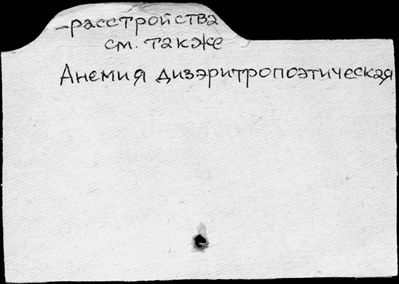 -расстройства
см. также
Анемия дизэритропоэтическая